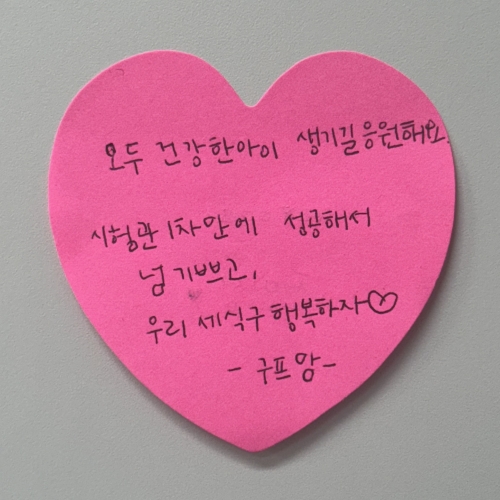 모두 건강한아이 생기길 응원해요.
시험관 1차만에 성공해서
넘 기쁘고,
우리 세식구 행복하자♡
- 구프앙 -